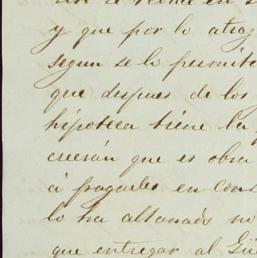 y que por lo atraz
segun se lo permite
que despues de los
hipoteca tiene la
creerán que es obra
á pagarles en cons
lo ha allanado no
que entregar al